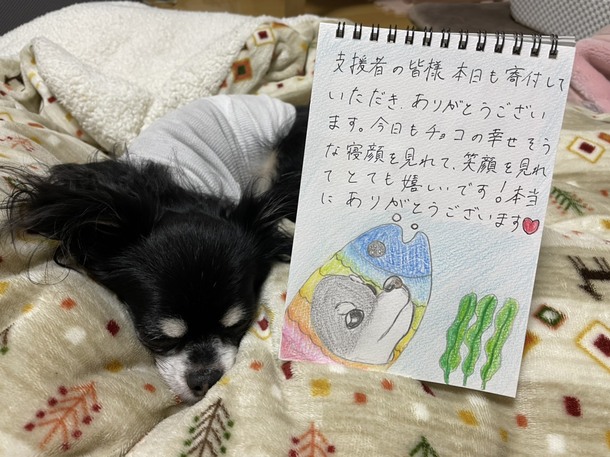 支援者の皆様 本日も寄付して
いただき、ありがとうござい
ます。今日もチョコの幸せそう
な寝顔を見れて、笑顔を見れ
てとても嬉しいです！本当
にありがとうございます❤